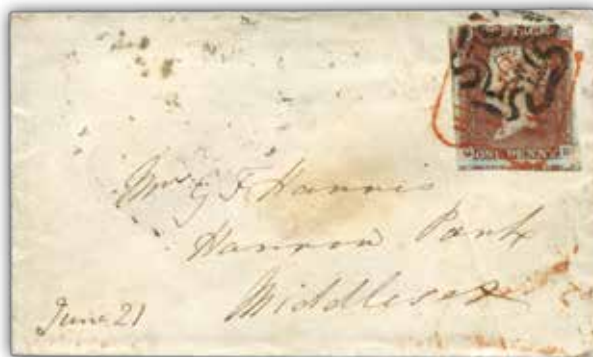 ONE PENNY
Mrs G F Harris
Harrow Park
Middlesex
June 21